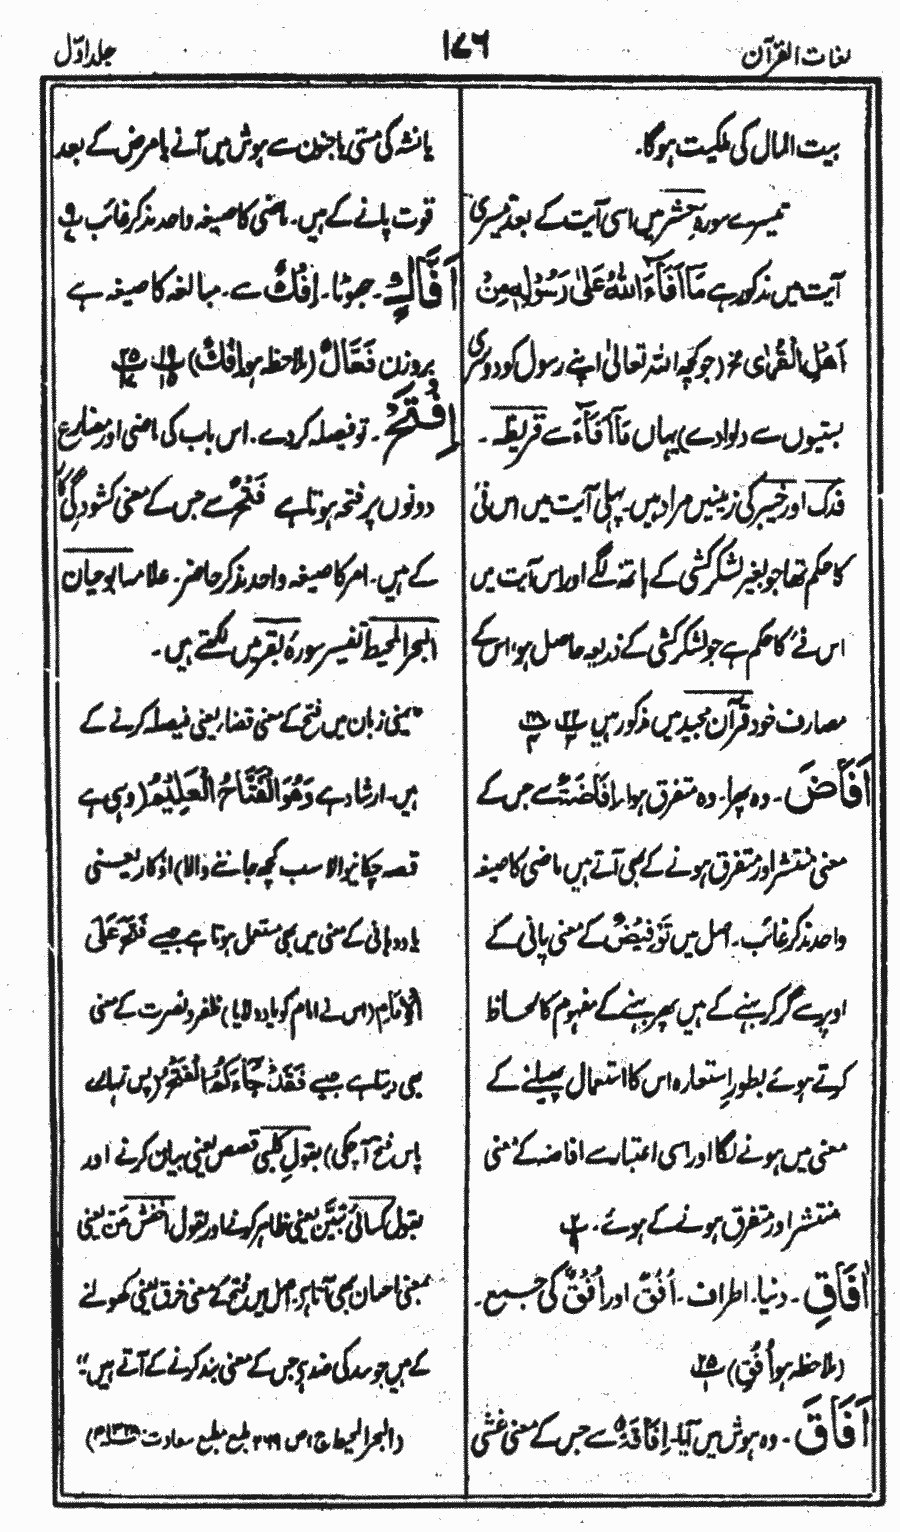 لغات القرآن
۱۷۶
جلد اوّل
بیت المال کی ملکیت ہوگا۔
تیسرے سورہٴ حشر میں اسی آیت کے بعد تیسری
آیت میں مذکور ہے مَآ اَفَآءَ اللّٰہُ عَلیٰ رَسُوْلِہٖ مِنْ
اَھْلِ الْقُرٰی (جو کچھ اللہ تعالیٰ اپنے رسول کو دوسری
بستیوں سے دلوادے) یہاں مَآ اَفَآءَ سے قریظہ ۔
فدک اور خیبر کی زمینیں مراد ہیں۔ پہلی آیت میں اس فئ
کا حکم تھا جو بغیر لشکر کشی کے ہاتھ لگے اور اس آیت میں
اس فئ کا حکم ہے جو لشکر کشی کے ذریعہ حاصل ہو، اس کے
مصارف خود قرآن مجید میں مذکور ہیں
اَفَاضَ۔ وہ پھرا۔ وہ متفرق ہوا۔ اِفَاضَۃٌ سے جس کے
معنی منتشر اور متفرق ہونے کے بھی آتے ہیں ماضی کا صیغہ
واحد مذکر غائب۔ اصل میں تَوْفِیْضٌ کے معنی پانی کے
اوپر سے گر کر بہنے کے ہیں پھر بہنے کے مفہوم کا لحاظ
کرتے ہوئے بطورِ استعارہ اس کا استعمال پھیلنے کے
معنی میں ہونے لگا اور اسی اعتبار سے افاضہ کے معنی
منتشر اور متفرق ہونے کے ہوئے۔
اٰفَاقِ۔ دنیا۔ اطراف۔ اُفُقٌ اور اُفْقٌ کی جمیع۔
(ملاحظہ ہو اُفُقٌ)
اَفَاقَ۔ وہ ہوش میں آیا۔ اِفَاقَۃٌ سے جس کے معنی غشی
یا نشہ کی مستی یا جنون سے ہوش میں آنے یا مرض کے بعد
قوت پانے کے ہیں۔ ماضی کا صیغہ واحد مذکر غائب
اَفَّاكٍ۔ جھوٹا۔ اِفْكٌ سے۔ مبالغہ کا صیغہ ہے
بروزن فَعَّالٌ (ملاحظہ ہو اِفْكٌ)
اِفْتَحْ۔ تو فیصلہ کردے۔ اس باب کی ماضی اور مضارع
دونوں پر فتحہ ہوتا ہے فَتْحٌ سے جس کے معنی کشودگی
کے ہیں۔ امر کا صیغہ واحد مذکر حاضر۔ علامہ ابوحیان
البحر المحیط تفسیر سورہٴ بقر میں لکھتے ہیں۔
”یمنی زبان میں فتح کے معنی قضاء یعنی فیصلہ کرنے کے
ہیں۔ ارشاد ہے وَھُوَ الْفَتَّاحُ الْعَلِیْمُ (وہی ہے
قصہ چکانیوالا سب کچھ جاننے والا) اذکار یعنی
یاد دہانی کے معنی میں بھی مستعمل ہوتا ہے جیسے فَتَحَ عَلَی
الْاِمَامِ (اس نے امام کو یاد دلایا) ظفر و نصرت کے معنی
بھی دیتا ہے جیسے فَقَدْ جَآءَکُمُ الْفَتْحُ (پس تمہارے
پاس فتح آ چکی) بقولِ کلبی قصص یعنی بیان کرنے اور
بقول کسائی تَبْیِیْن یعنی ظاہر کرنے اور بقول اخفش مَنّ یعنی
بمعنی احسان بھی آتا ہے۔ اصل میں فتح کے معنی خرق یعنی کھولنے
کے ہیں جو سد کی ضد ہے جس کے معنی بند کرنے کے آتے ہیں“
(البحر المحیط ج ا ص ۲۶۹ طبع مطبع سعادت ۱۳۲۸ھ)